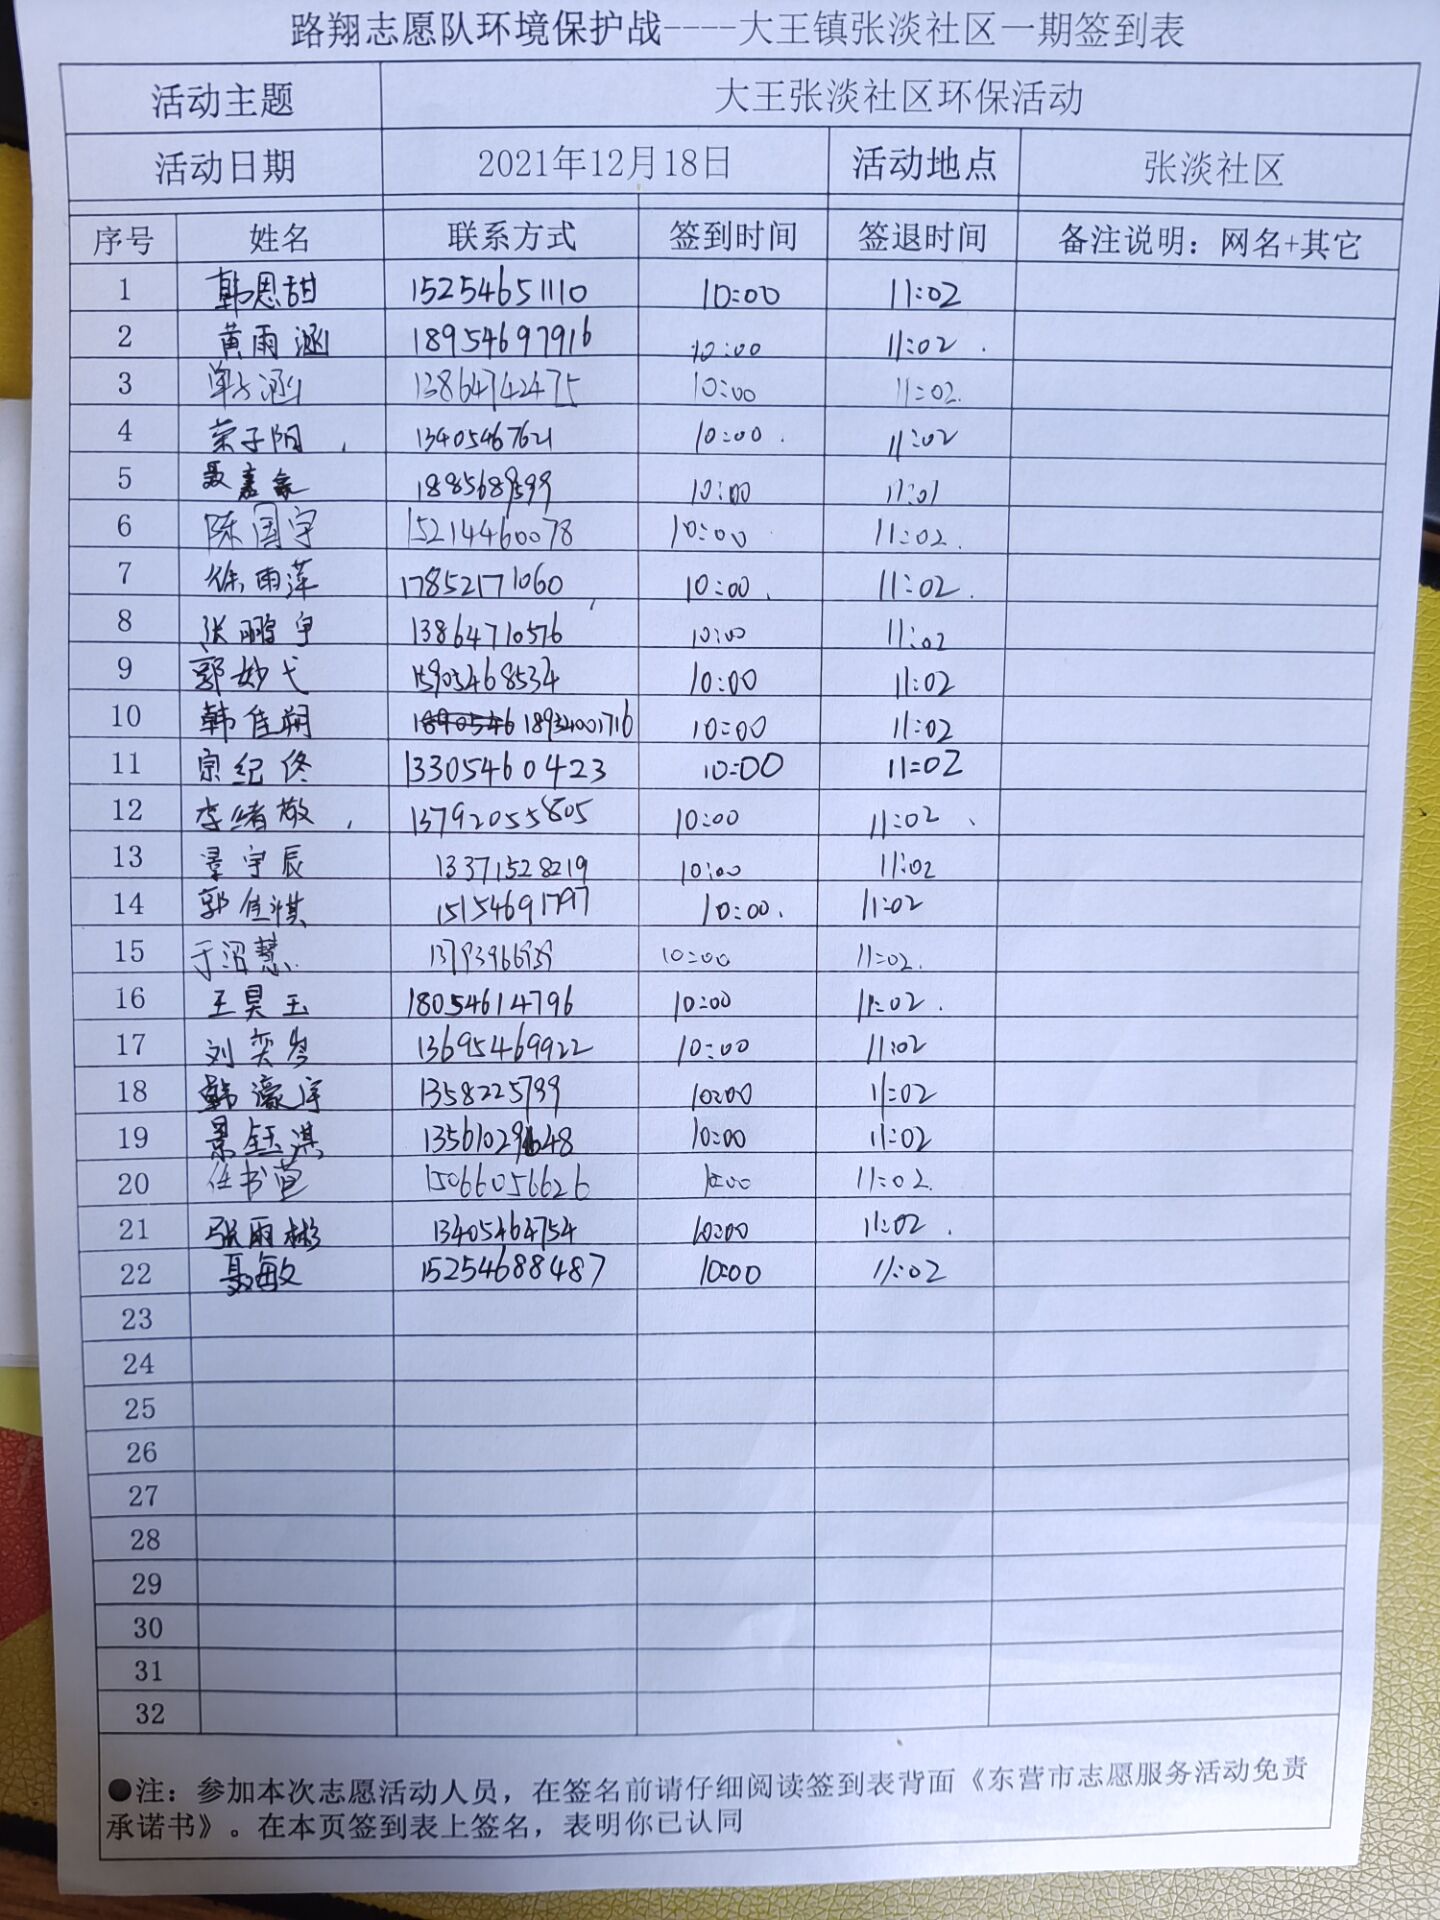 路翔志愿队环境保护战----大王镇张淡社区一期签到表
活动主题 大王张淡社区环保活动
活动日期 2021年12月18日 活动地点 张淡社区
序号 姓名 联系方式 签到时间 签退时间 备注说明：网名+其它
1 韩恩甜 15254651110 10:00 11:02
2 黄雨涵 18954697916 10:00 11:02
3 单方涵 13864742475 10:00 11:02
4 荣子阳 13405467621 10:00 11:02
5 聂嘉 10:00 11:01
6 陈国宇 15214460078 10:00 11:02
7 徐雨萍 17852171060 10:00 11:02
8 张鹏宇 13864710576 10:00 11:02
9 郭妙弋 15905468534 10:00 11:02
10 韩佳朔 18934001716 10:00 11:02
11 宗纪佟 13305460423 10:00 11:02
12 李绪敬 13792055805 10:00 11:02
13 景宇辰 13371528219 10:00 11:02
14 郭佳淇 15154691797 10:00 11:02
15 于沼慧 10:00 11:02
16 王昊玉 18054614796 10:00 11:02
17 刘奕岑 13695469922 10:00 11:02
18 韩濠宇 1358225799 10:00 11:02
19 景钰淇 13561029648 10:00 11:02
20 任书萱 15066056626 10:00 11:02
21 张雨彬 13405464754 10:00 11:02
22 聂敏 15254688487 10:00 11:02
23
24
25
26
27
28
29
30
31
32
●注：参加本次志愿活动人员，在签名前请仔细阅读签到表背面《东营市志愿服务活动免责
承诺书》。在本页签到表上签名，表明你已认同